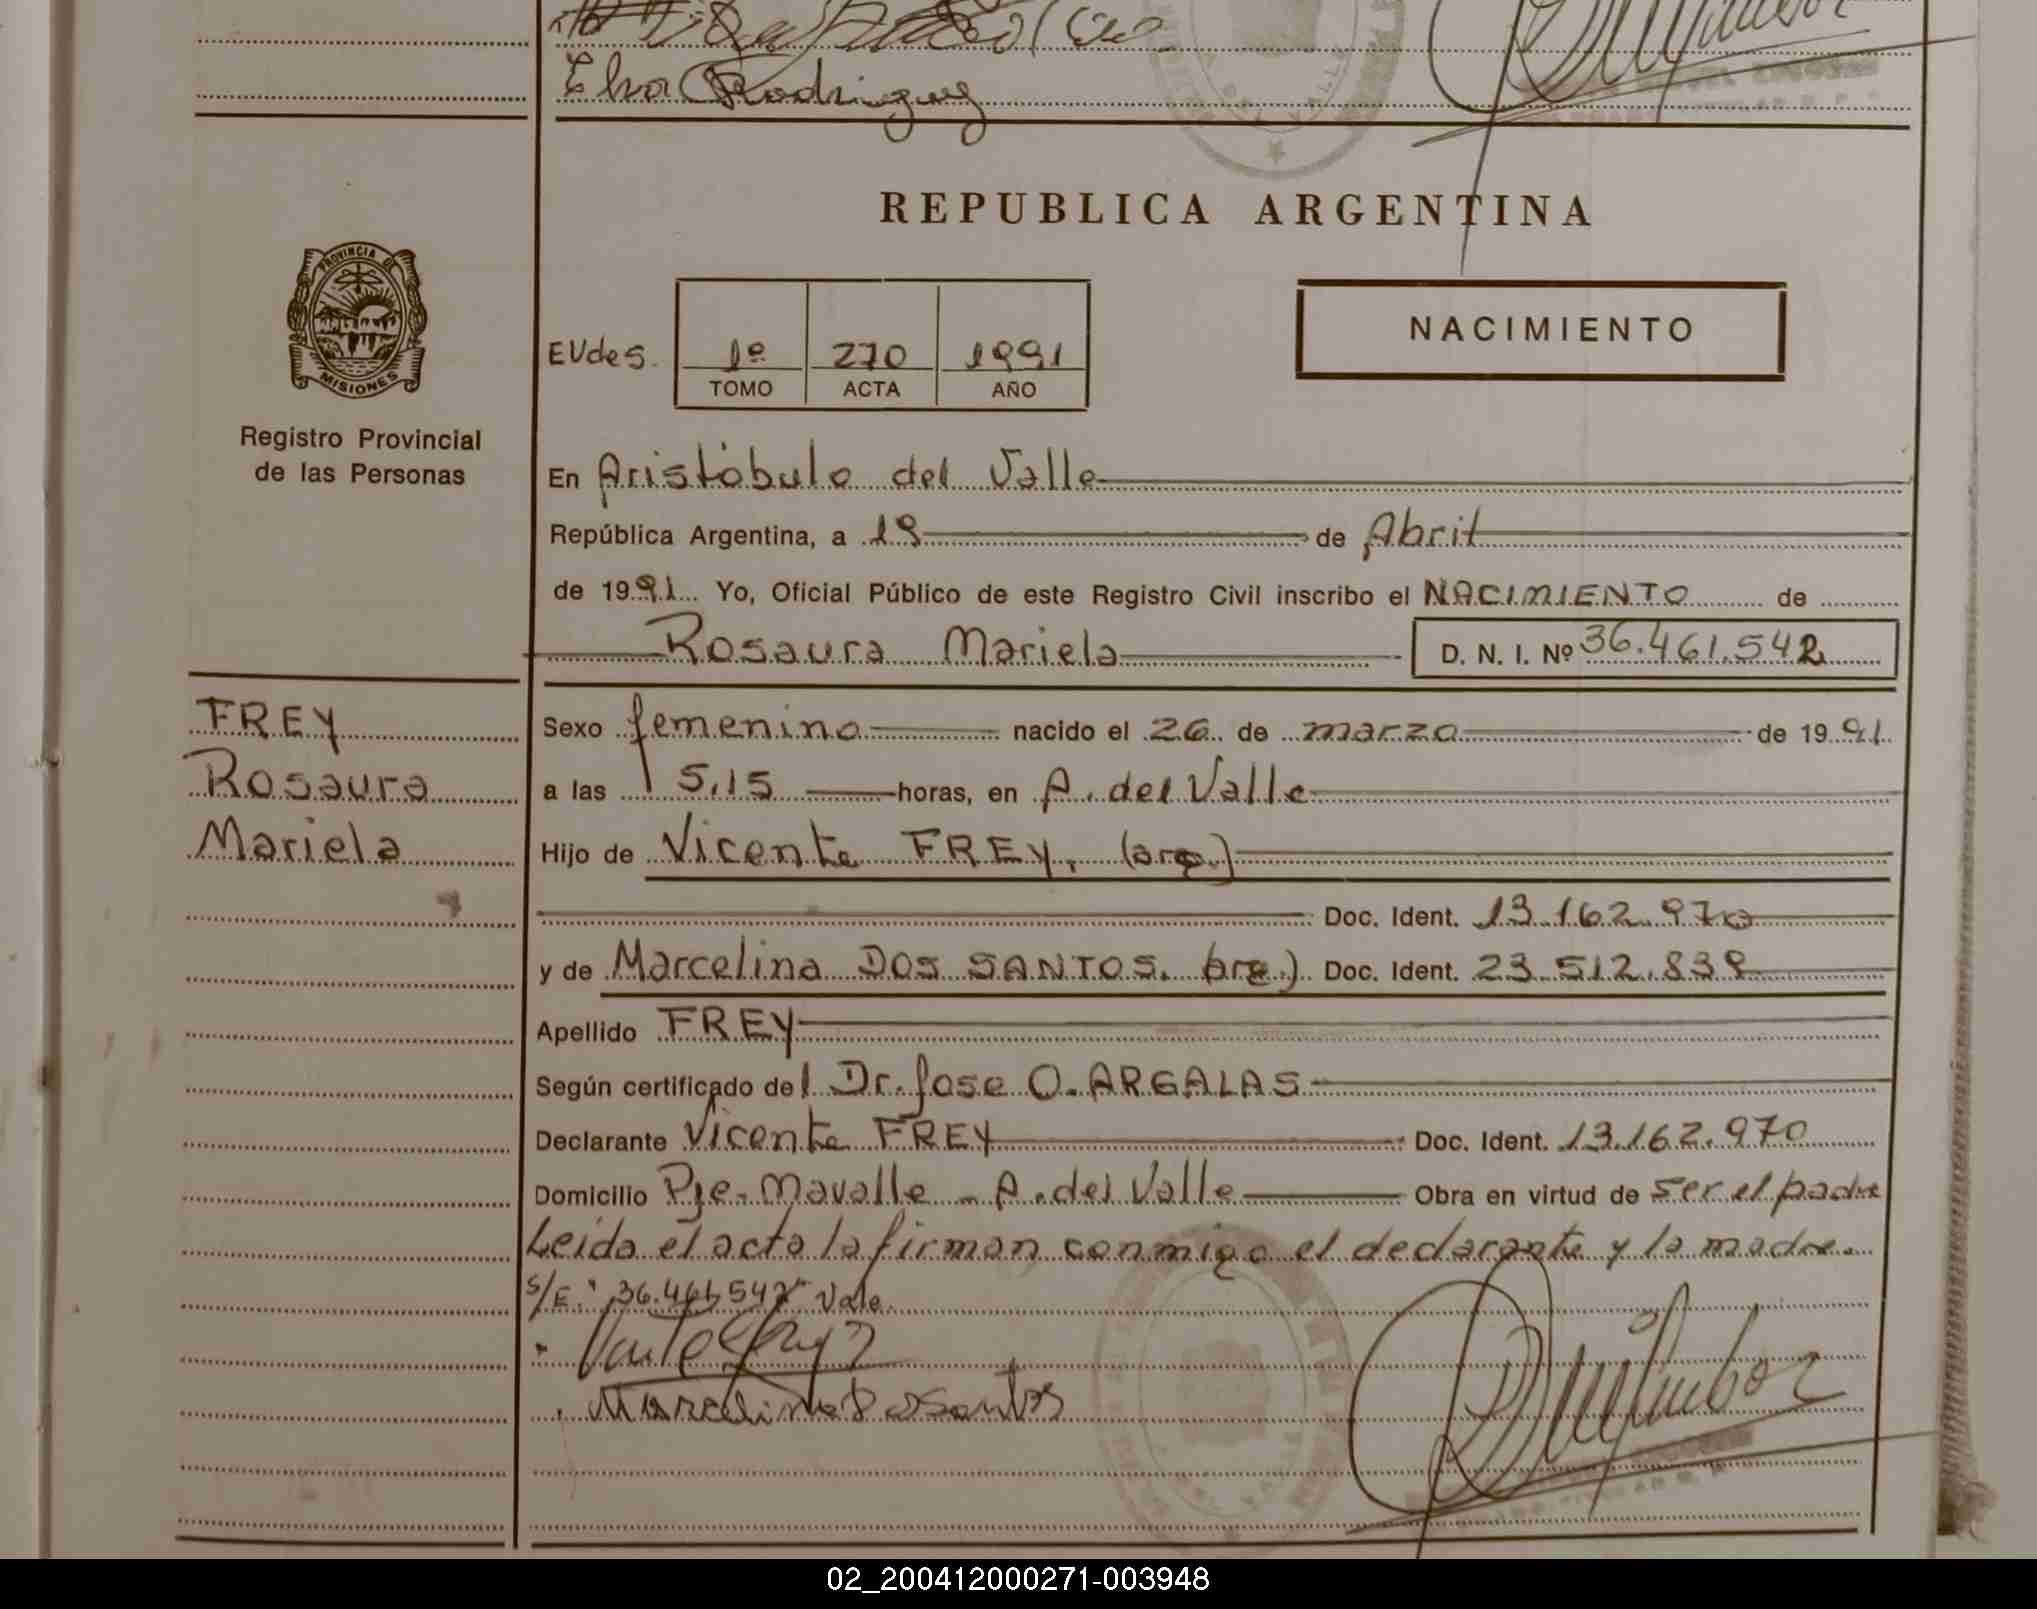 Elva Rodriguez
REPUBLICA ARGENTINA
PROVINCIA DE
MISIONES
Registro Provincial
de las Personas
EVdes.
1º 270 1991
TOMO ACTA AÑO
NACIMIENTO
En Aristóbulo del Valle
República Argentina, a 19 de Abril
de 1991 Yo, Oficial Público de este Registro Civil inscribo el NACIMIENTO de
Rosaura Mariela D. N. I. Nº 36.461.542
FREY
Rosaura
Mariela
Sexo femenino nacido el 26 de marzo de 1991
a las 5,15 horas, en A. del Valle
Hijo de Vicente FREY, (arg.)
Doc. Ident. 13.162.970
y de Marcelina DOS SANTOS. (arg.) Doc. Ident. 23.512.839
Apellido FREY
Según certificado del Dr. Jose O. ARGALAS
Declarante Vicente FREY Doc. Ident. 13.162.970
Domicilio Pje. Mavalle - A. del Valle Obra en virtud de ser el padre
Leída el acta la firman conmigo el declarante y la madre.
S/E: "36.461.542" Vale.
Marcelina Dos Santos
02_200412000271-003948